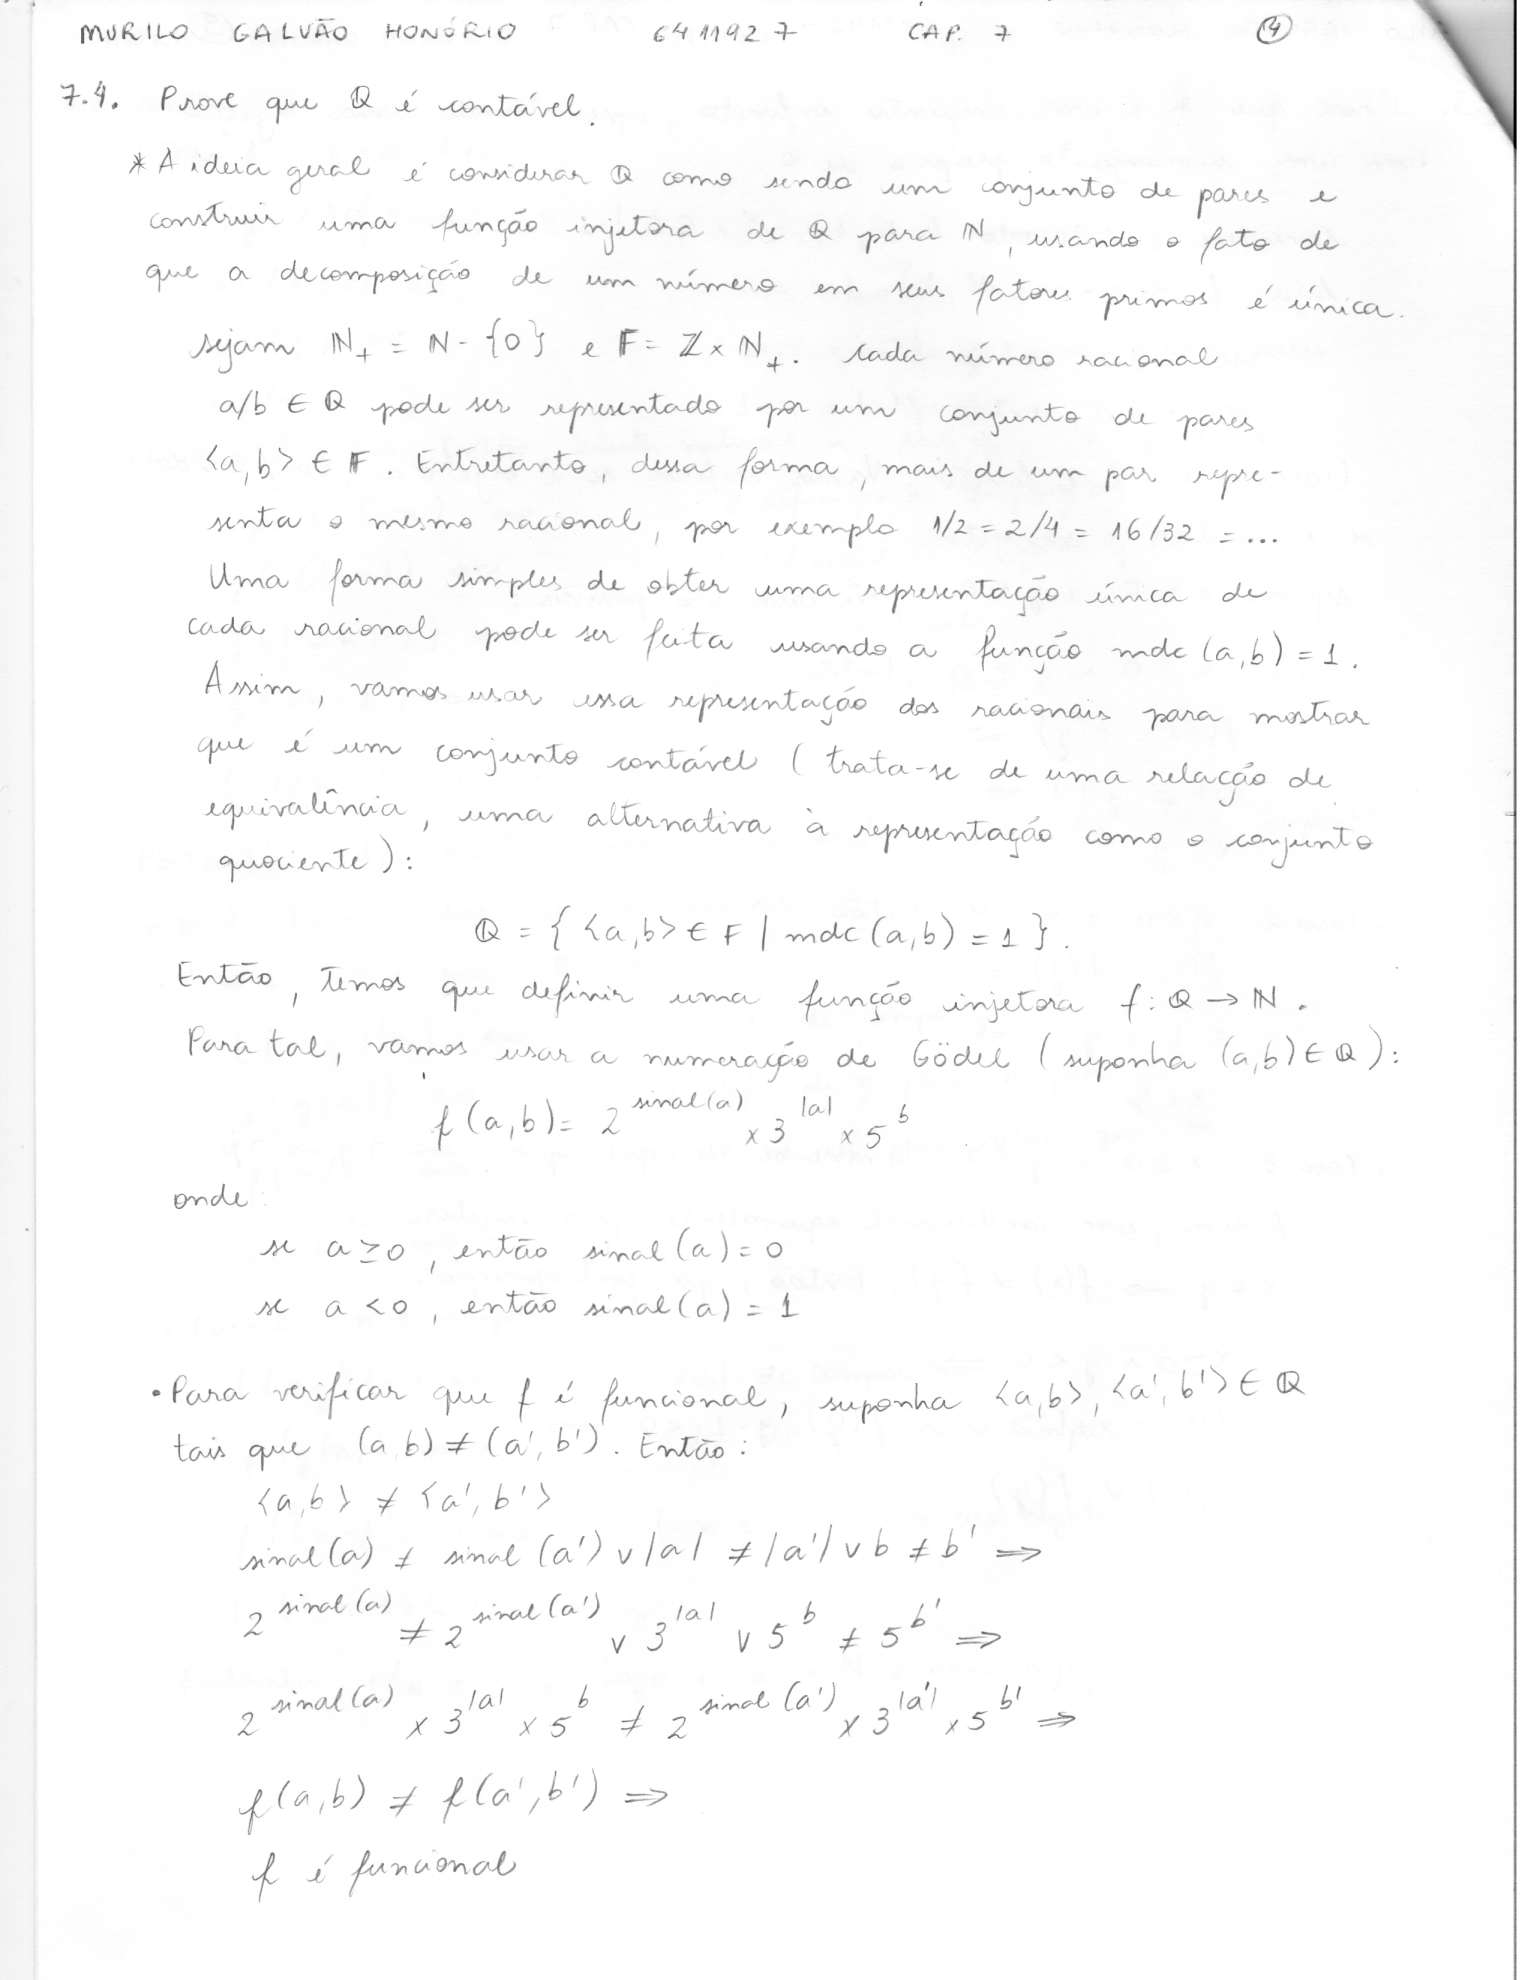 MURILO GALVÃO HONÓRIO 6411927 CAP. 7 4
7.4. Prove que ℚ é contável.
* A ideia geral é considerar ℚ como sendo um conjunto de pares e
construir uma função injetora de ℚ para ℕ, usando o fato de
que a decomposição de um número em seus fatores primos é única.
sejam ℕ₊ = ℕ - {0} e F = ℤ × ℕ₊. Cada número racional
a/b ∈ ℚ pode ser representado por um conjunto de pares
<a,b> ∈ F. Entretanto, dessa forma, mais de um par repre-
senta o mesmo racional, por exemplo 1/2 = 2/4 = 16/32 = ...
Uma forma simples de obter uma representação única de
cada racional pode ser feita usando a função mdc (a,b) = 1.
Assim, vamos usar essa representação dos racionais para mostrar
que é um conjunto contável ( trata-se de uma relação de
equivalência, uma alternativa à representação como o conjunto
quociente ) :
ℚ = { <a,b> ∈ F | mdc (a,b) = 1 }.
Então, temos que definir uma função injetora f : ℚ → ℕ.
Para tal, vamos usar a numeração de Gödel ( suponha (a,b) ∈ ℚ ) :
f (a,b) = 2^sinal(a) × 3^|a| × 5^b
onde:
se a ≥ 0, então sinal(a) = 0
se a < 0, então sinal(a) = 1
• Para verificar que f é funcional, suponha <a,b>, <a',b'> ∈ ℚ
tais que (a,b) ≠ (a',b'). Então :
<a,b> ≠ <a',b'>
sinal(a) ≠ sinal(a') ∨ |a| ≠ |a'| ∨ b ≠ b' ⇒
2^sinal(a) ≠ 2^sinal(a') ∨ 3^|a| ∨ 5^b ≠ 5^b' ⇒
2^sinal(a) × 3^|a| × 5^b ≠ 2^sinal(a') × 3^|a'| × 5^b' ⇒
f(a,b) ≠ f(a',b') ⇒
f é funcional